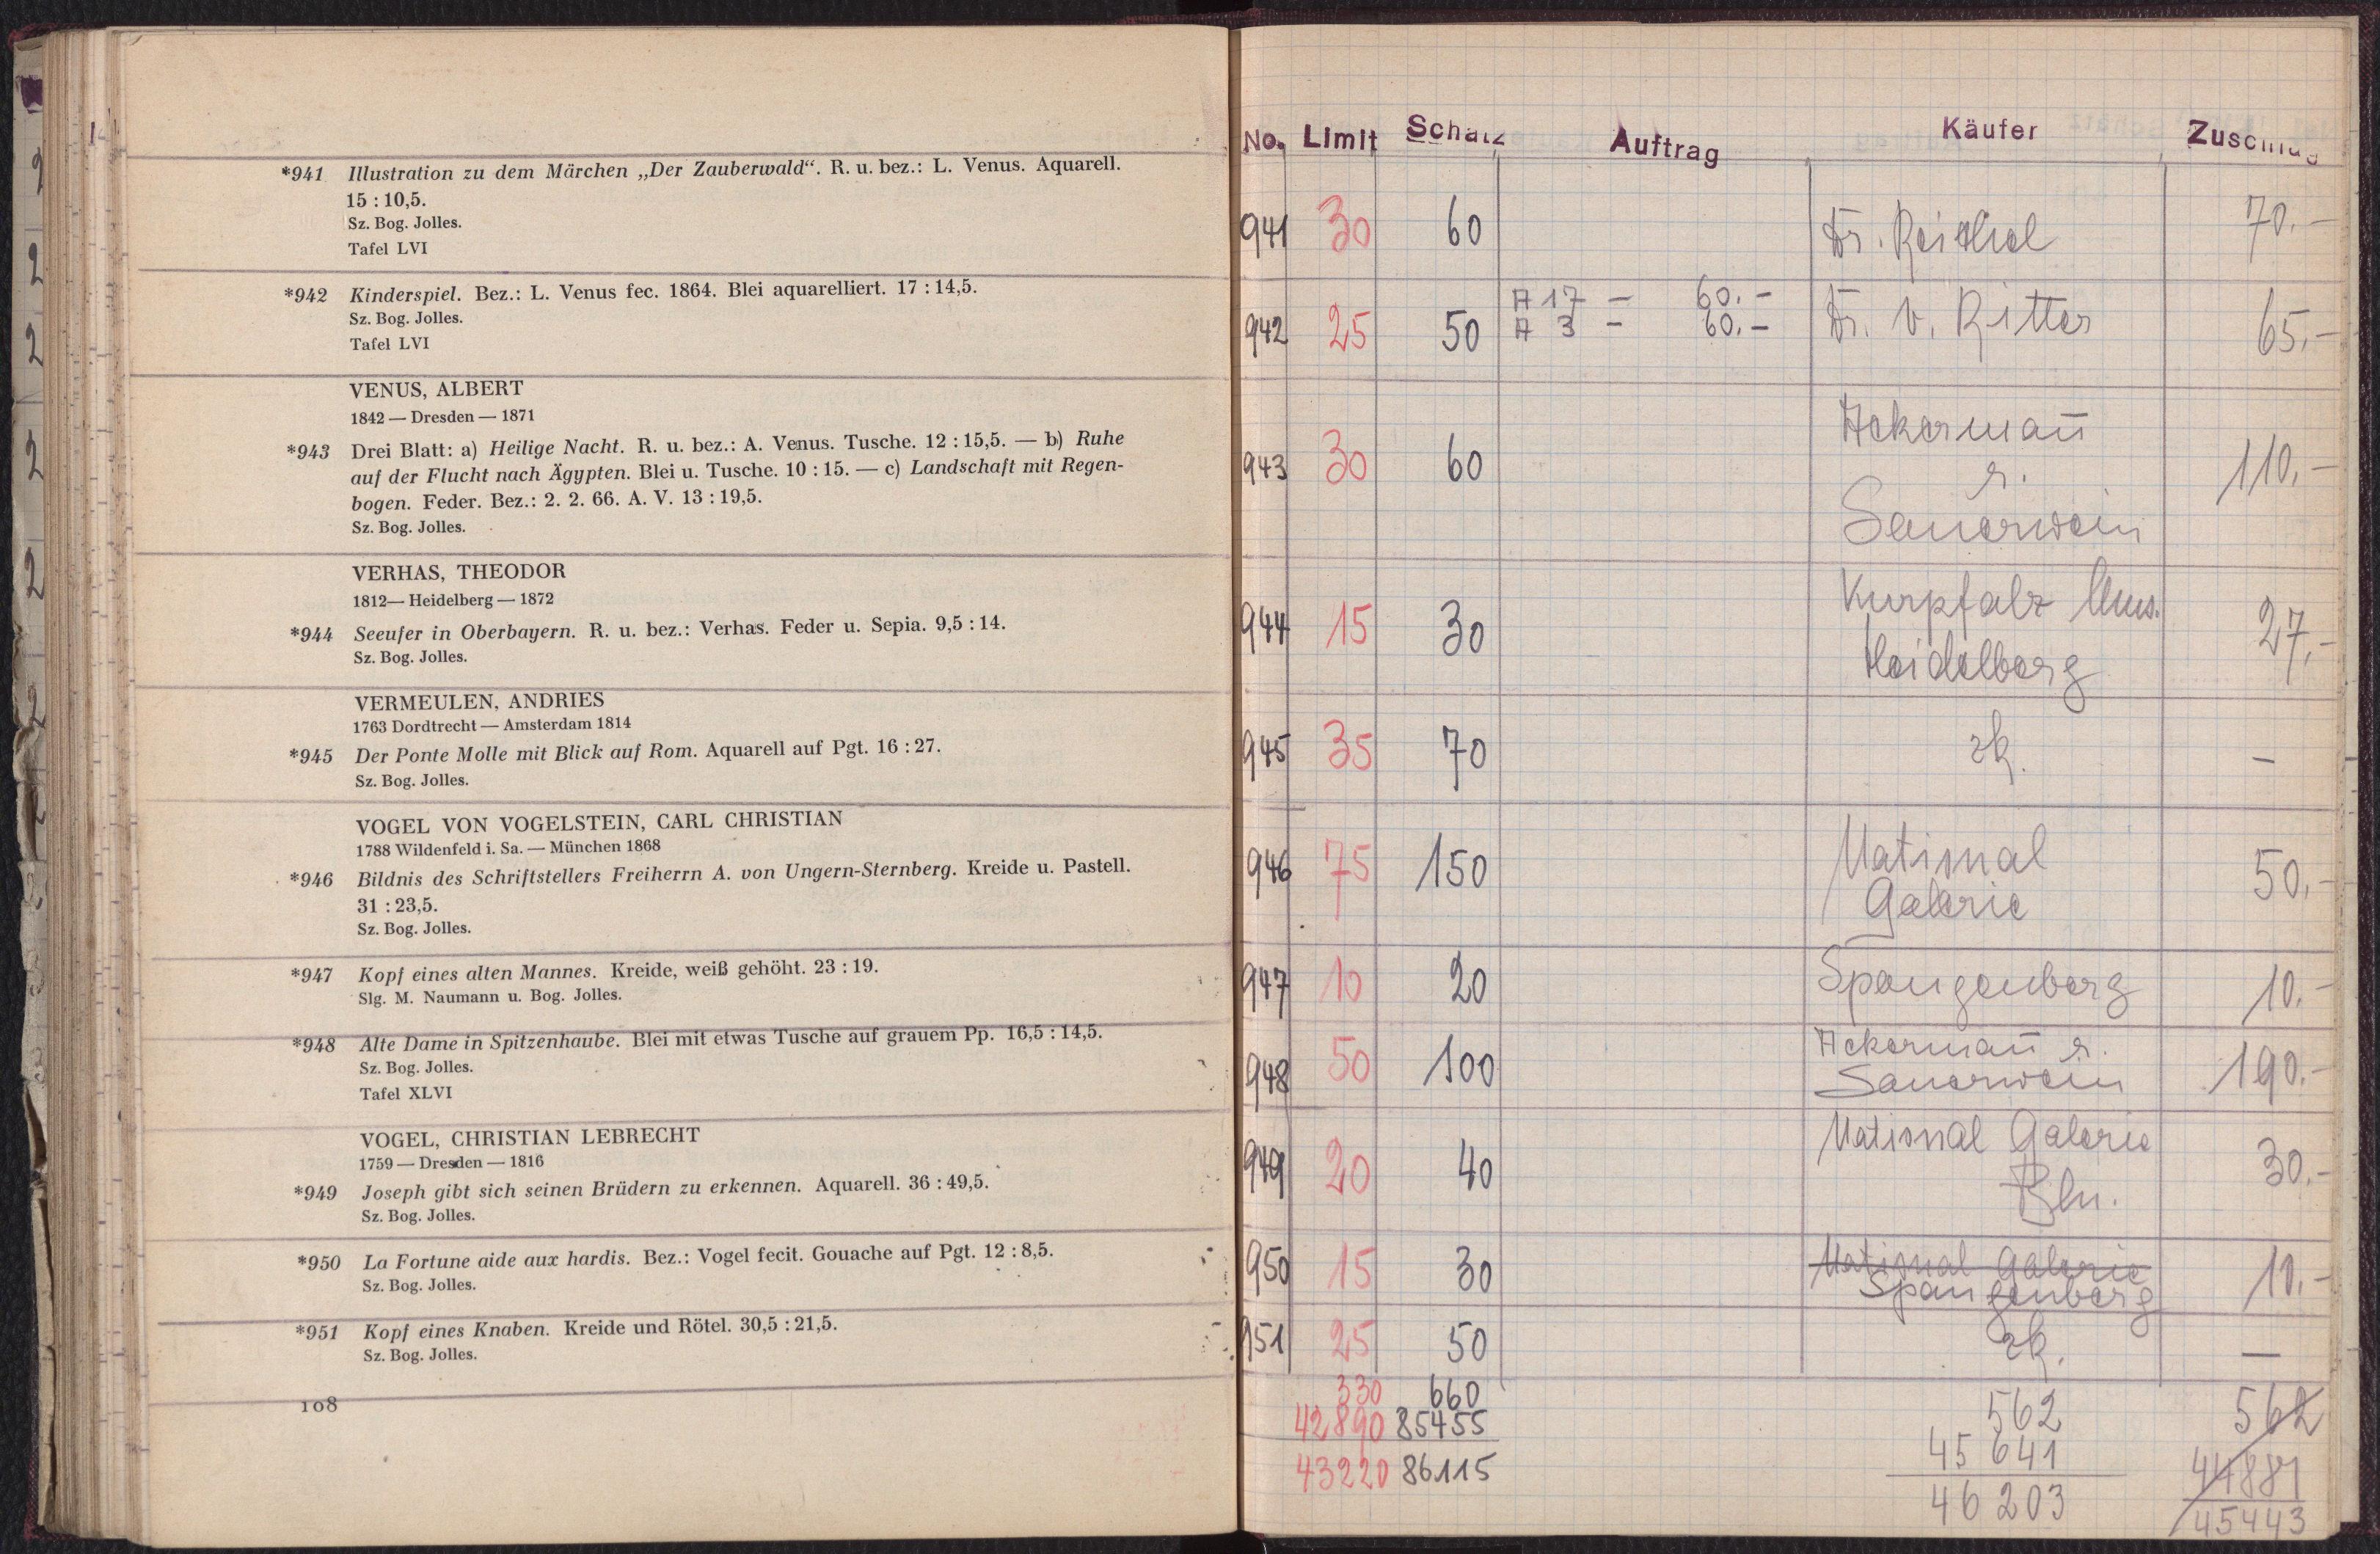 *941 Illustration zu dem Märchen „Der Zauberwald“. R. u. bez.: L. Venus. Aquarell.
15 : 10,5.
Sz. Bog. Jolles.
Tafel LVI
*942 Kinderspiel. Bez.: L. Venus fec. 1864. Blei aquarelliert. 17 : 14,5.
Sz. Bog. Jolles.
Tafel LVI
VENUS, ALBERT
1842 — Dresden — 1871
*943 Drei Blatt: a) Heilige Nacht. R. u. bez.: A. Venus. Tusche. 12 : 15,5. — b) Ruhe
auf der Flucht nach Ägypten. Blei u. Tusche. 10 : 15. — c) Landschaft mit Regen-
bogen. Feder. Bez.: 2. 2. 66. A. V. 13 : 19,5.
Sz. Bog. Jolles.
VERHAS, THEODOR
1812— Heidelberg — 1872
*944 Seeufer in Oberbayern. R. u. bez.: Verhas. Feder u. Sepia. 9,5 : 14.
Sz. Bog. Jolles.
VERMEULEN, ANDRIES
1763 Dordtrecht — Amsterdam 1814
*945 Der Ponte Molle mit Blick auf Rom. Aquarell auf Pgt. 16 : 27.
Sz. Bog. Jolles.
VOGEL VON VOGELSTEIN, CARL CHRISTIAN
1788 Wildenfeld i. Sa. — München 1868
*946 Bildnis des Schriftstellers Freiherrn A. von Ungern-Sternberg. Kreide u. Pastell.
31 : 23,5.
Sz. Bog. Jolles.
*947 Kopf eines alten Mannes. Kreide, weiß gehöht. 23 : 19.
Slg. M. Naumann u. Bog. Jolles.
*948 Alte Dame in Spitzenhaube. Blei mit etwas Tusche auf grauem Pp. 16,5 : 14,5.
Sz. Bog. Jolles.
Tafel XLVI
VOGEL, CHRISTIAN LEBRECHT
1759 — Dresden — 1816
*949 Joseph gibt sich seinen Brüdern zu erkennen. Aquarell. 36 : 49,5.
Sz. Bog. Jolles.
*950 La Fortune aide aux hardis. Bez.: Vogel fecit. Gouache auf Pgt. 12 : 8,5.
Sz. Bog. Jolles.
*951 Kopf eines Knaben. Kreide und Rötel. 30,5 : 21,5.
Sz. Bog. Jolles.
108
No. Limit Schatz Auftrag Käufer Zuschlag
941 30 60 Dr. Reichel 70.-
942 25 50 A 17 - 60.- Dr. v. Ritter 65,-
A 3 - 60.-
943 30 60 Ackermañ 110,-
s.
Sauerwein
944 15 30 Kurpfalz Mus. 27,-
Heidelberg
945 35 70 zk. -
946 75 150 National 50,-
Galerie
947 10 20 Spangenberg 10.-
948 50 100 Ackermañ s. 190.-
Sauerwein
949 20 40 National Galerie 30.-
Bln.
950 15 30 National Galerie 10.-
Spangenberg
951 25 50 zk. —
330 660 562 562
42890 85455 45641 44881
43220 86115 46203 45443